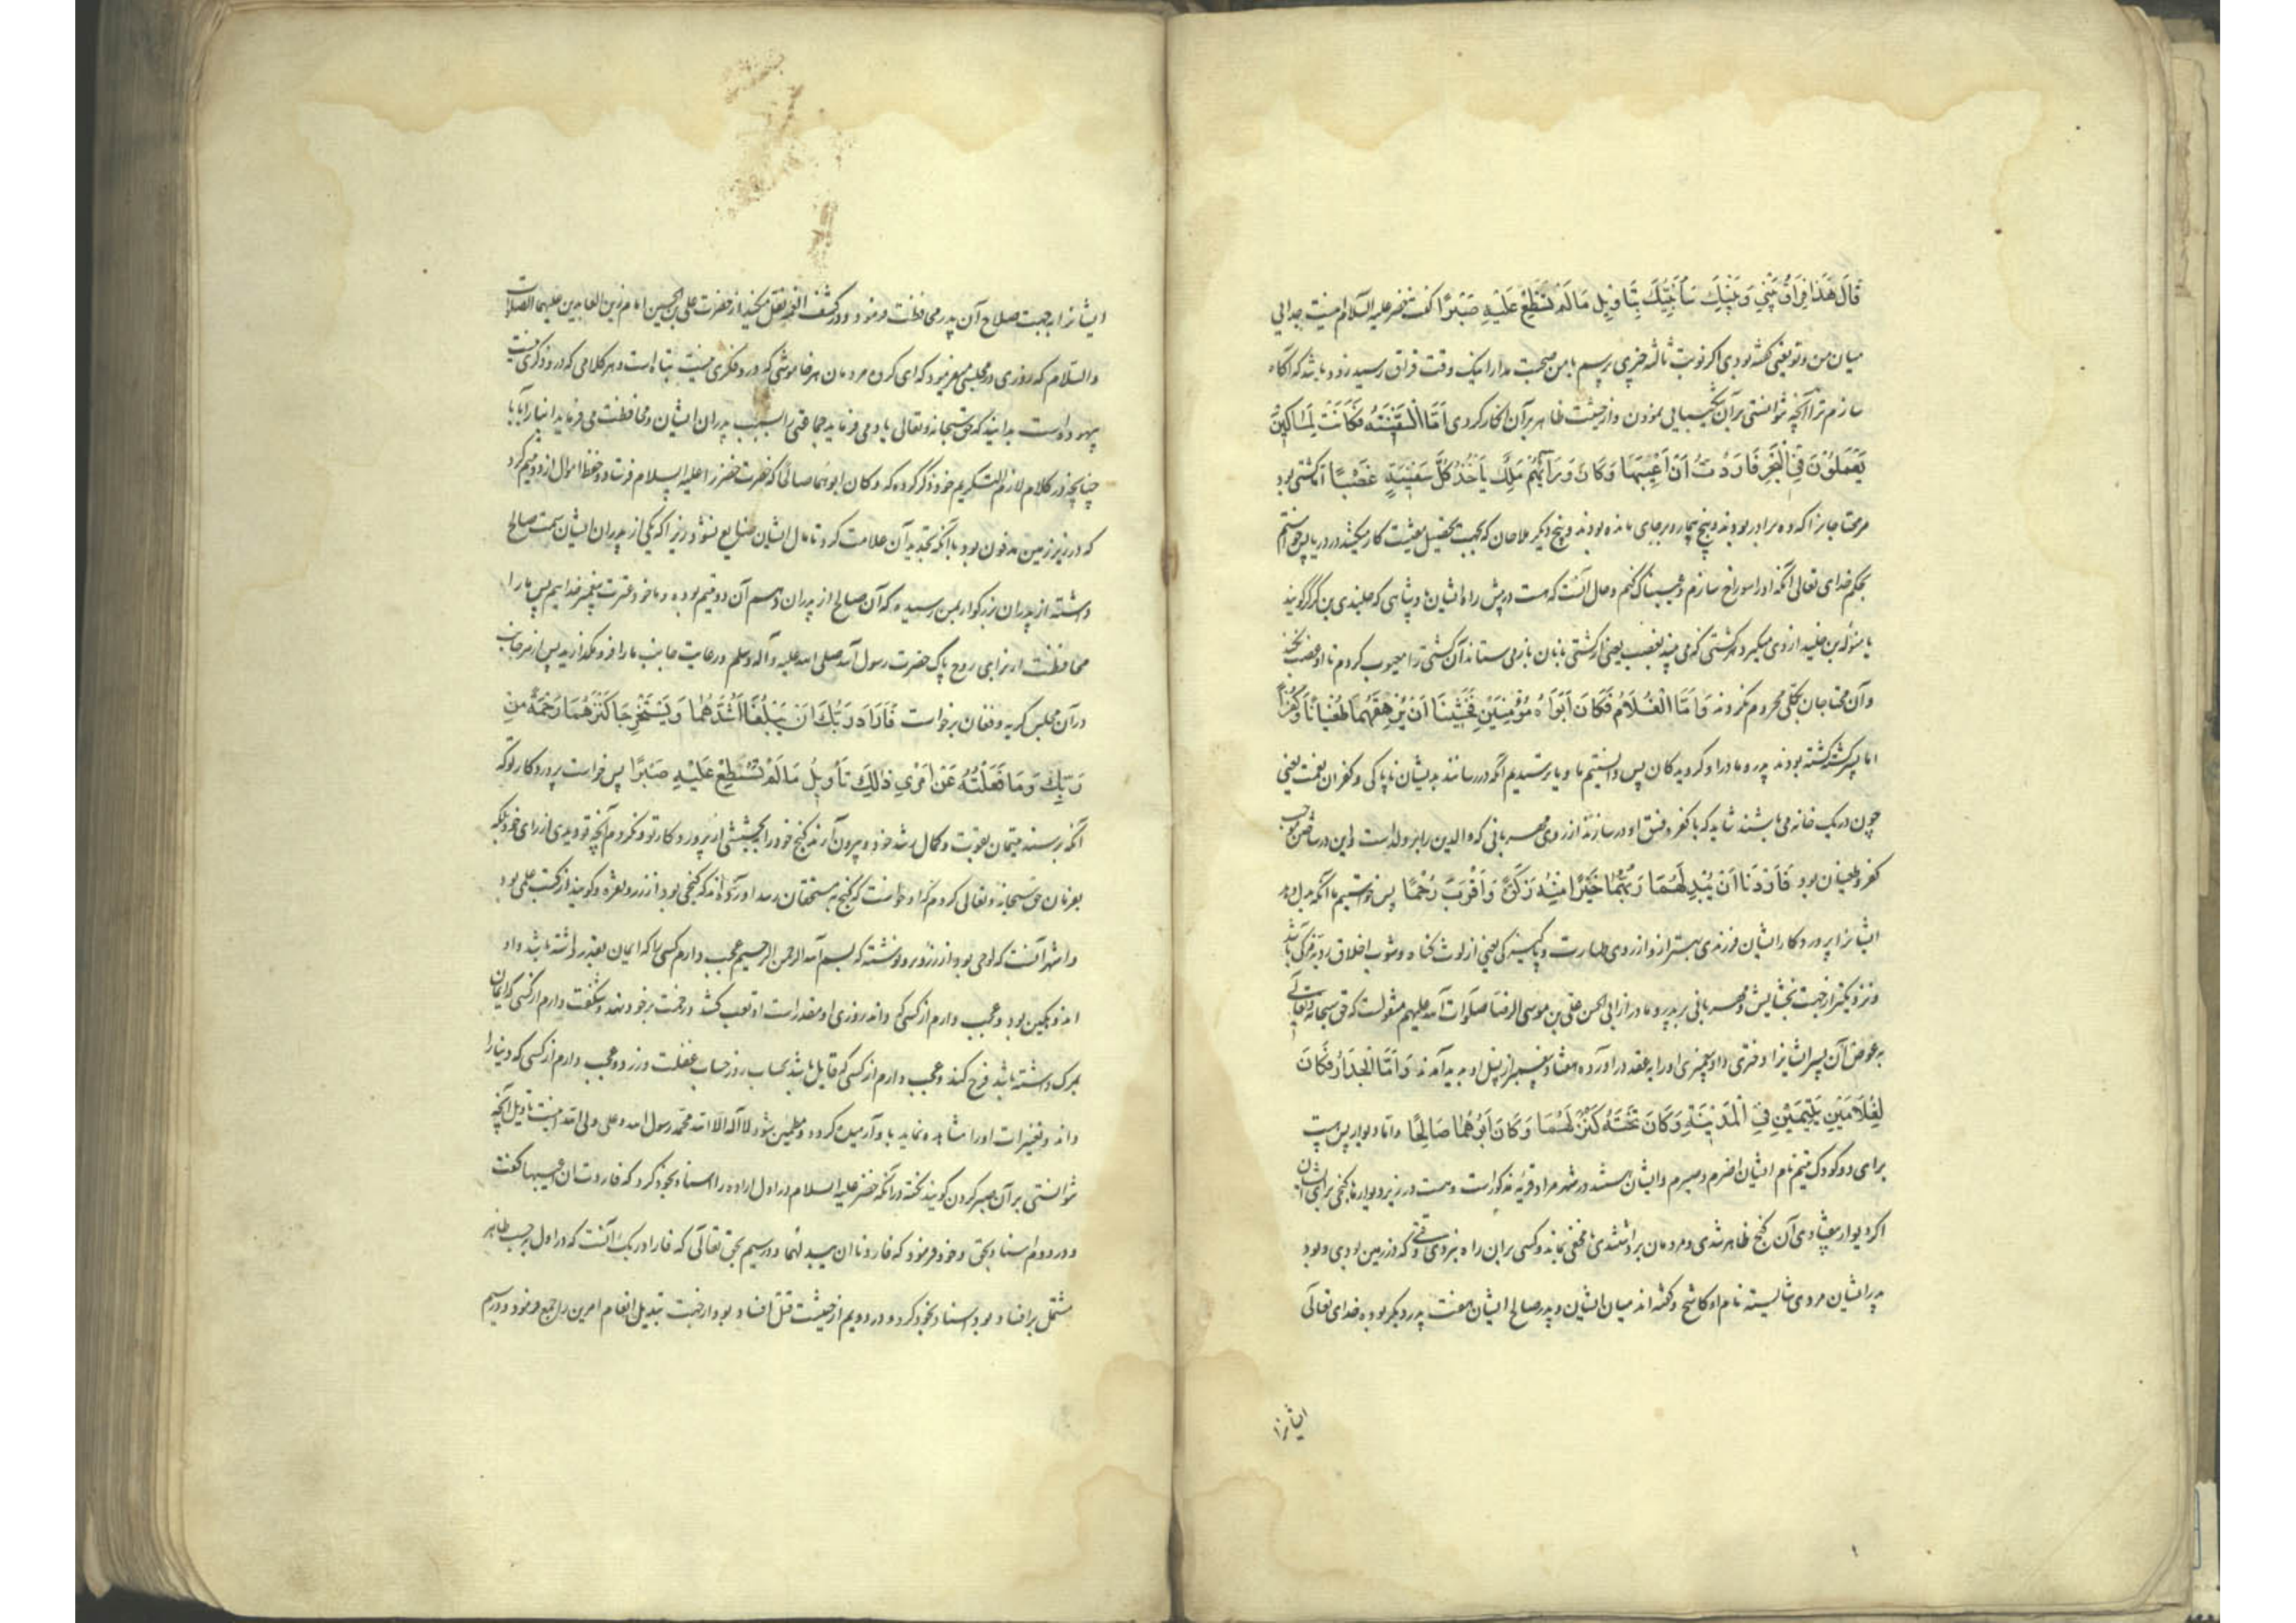 قَالَ هَذَا فِرَاقُ بَيْنِي وَبَيْنِكَ سَأُنَبِّئُكَ بِتَأْوِيلِ مَا لَمْ تَسْتَطِعْ عَلَيْهِ صَبْرًا گفت خضر علیه السلام اینست جدایی
میان من و تو یعنی گفته بودی اگر نوبت ثالثه چیزی پرسم با من صحبت مدار اینک وقت فراق رسید زود باشد که آگاه
سازم ترا آنچه نتوانستی بر آن شکیبایی نمودن و از حیثیت ظاهر بر آن انکار کردی اَمَّا السَّفِينَةُ فَكَانَتْ لِمَسَاكِينَ
يَعْمَلُونَ فِي الْبَحْرِ فَاَرَدْتُ اَنْ اَعِيبَهَا وَكَانَ وَرَآئَهُمْ مَلِكٌ يَأْخُذُ كُلَّ سَفِينَةٍ غَصْبًا اما کشتی بود
مر محتاجانرا که ده برادر بودند و پنج بیمار و بر جای مانده بودند و پنج دیگر ملاحان که بجهت تحصیل معیشت کار میکنند در دریا پس خواستم
بحکم خدای تعالی آنکه او را سوراخ سازم و عیبناک کنم و حال آنست که هست در پیش راه ایشان پادشاهی که جلندی بن کرکر گویند
یا منوله بن جلید ازدی میگیرد هر کشتی که می بیند بغصب یعنی از کشتی بانان باز می ستاند آن کشتی را معیوب کردم تا او غصب نکند
و آن محتاجان بکلی محروم نگردند وَاَمَّا الْغُلَامُ فَكَانَ اَبَوَاهُ مُؤْمِنَيْنِ فَخَشِينَا اَنْ يُرْهِقَهُمَا طُغْيَانًا وَكُفْرًا
اما پسر کشته گشته بودند پدر و مادر او گرویدگان پس دانستیم ما و یا ترسیدیم آنکه در رسانند بدیشان ناپاکی و کفران نعمت یعنی
چون در یک خانه می باشند شاید که با کفر و فسق او در سازند از روی مهربانی که والدین را بر ولد است و این در ساختن موجب
کفر و طغیان بود فَاَرَدْنَا اَنْ يُبْدِلَهُمَا رَبُّهُمَا خَيْرًا مِنْهُ زَكٰوةً وَاَقْرَبَ رُحْمًا پس خواستیم ما آنکه بدل دهد
ایشانرا پروردگار ایشان فرزندی بهتر ازو از روی طهارت و پاکیزگی یعنی از لوث گناه و شوب اخلاق ردیه زکی باشد
و نزدیکتر از جهت بخشایش و مهربانی بر پدر و مادر از ابی الحسن علی بن موسی الرضا صلوات الله علیهم منقولست که حق سبحانه و تعالی
به عوض آن پسر ایشانرا دختری داد و پیغمبری او را به عقد در آورده هفتاد پیغمبر از نسل او بدید آمدند وَاَمَّا الْجِدَارُ فَكَانَ
لِغُلَامَيْنِ يَتِيمَيْنِ فِي الْمَدِينَةِ وَكَانَ تَحْتَهُ كَنْزٌ لَهُمَا وَكَانَ اَبُوهُمَا صَالِحًا و اما دیوار پس هست
برای دو کودک یتیم نام ایشان اصرم و صریم و ایشان هستند در شهر مراد قریه مذکور است و هست در زیر دیوار ما گنجی برای ایشان
اگر دیوار بیفتادی آن گنج ظاهر شدی و مردمان برداشتندی تا مخفی بماند و کسی بران راه نبرد که در زمین بودی و بود
پدر ایشان مردی شایسته نام او کاشح و گفته اند میان ایشان و پدر صالح ایشان هفت پدر دیگر بوده خدای تعالی
ایشانرا
ایشانرا به جهت صلاح آن پدر محافظت فرمود و در کشف الغمه نقل میکند از حضرت علی بن الحسین امام زین العابدین علیهما الصلات
والسلام که روزی در مجلسی میفرمود که ای گروه مردمان هر خاموشی که درو فکری نیست تباه است و هر کلامی که درو ذکری نیست
بیهوده است بدانید که حق سبحانه و تعالی یاد می فرماید جماعتی را بسبب پدران ایشان و محافظت می فرماید ابنا را به آبا
چنانچه در کلام لازم التکریم خود ذکر کرده که وکان ابوهما صالحا که حضرت خضر را علیه السلام فرستاد و حفظ اموال ازدو یتیم کرد
که در زیر زمین مدفون بود با آنکه تجدید آن علامت کرد تا مال ایشان ضایع نشود زیرا که یکی از پدران ایشان سمت صالح
داشته از پدران بزرگوار بمن رسیده که آن صالح از پدران نهم آن دو یتیم بوده و ما خود عترت پیغمبر خداییم پس ما را
محافظت از برای روح پاک حضرت رسول الله صلی الله علیه و آله وسلم و رعایت جانب ما را فرو مگذارید پس از هر جانب
در آن مجلس گریه و فغان برخاست فَاَرَادَ رَبُّكَ اَنْ يَبْلُغَا اَشُدَّهُمَا وَيَسْتَخْرِجَا كَنْزَهُمَا رَحْمَةً مِنْ
رَبِّكَ وَمَا فَعَلْتُهُ عَنْ اَمْرِي ذٰلِكَ تَأْوِيلُ مَا لَمْ تَسْتَطِعْ عَلَيْهِ صَبْرًا پس خواست پروردگار تو که
آنکه برسند یتیمان بقوت و کمال رشد خود و بیرون آرند گنج خود را بخششی از پروردگار تو و نکردم آنچه تو دیدی از رای خود بلکه
بفرمان حق سبحانه و تعالی کردم که او خواست که گنج به مستحقان رسد آورده اند که گنجی بود از زر و نقره و گویند از کتب علمی بود
و اشهر آنست که لوحی بود از زر و برو نوشته که بسم الله الرحمن الرحیم عجب دارم کسی را که ایمان بقدر داشته باشد و او
اندوهگین بود و عجب دارم از کسی که داند روزی او مقدر است او تعب کشد و زحمت بر خود نهد و شگفت دارم از کسی که ایمان
بمرگ داشته باشد فرح کند و عجب دارم از کسی که قایل باشد بحساب روز حساب غفلت ورزد و عجب دارم از کسی که دنیا را
داند و تغییرات او را مشاهده نماید باو آرمیده گردد و مطمین شود لا اله الا الله محمد رسول الله و علی ولی الله اینست تاویل آنچه
نتوانستی بر آن صبر کردن گویند نکته در آنکه خضر علیه السلام در اول اراده را اسناد بخود کرد که فاردت ان اعیبها گفت
و در دوم اسناد بحق و خود فرمود که فاردنا ان یبدلهما و در سیم بحق تعالی که فاراد ربک آنست که در اول به حسب ظاهر
مشتمل بر افساد بود اسناد بخود کرد و در دویم از حیثیت قتل افساد بود از جهت تبدیل انعام امرین را جمع فرمود و در سیم